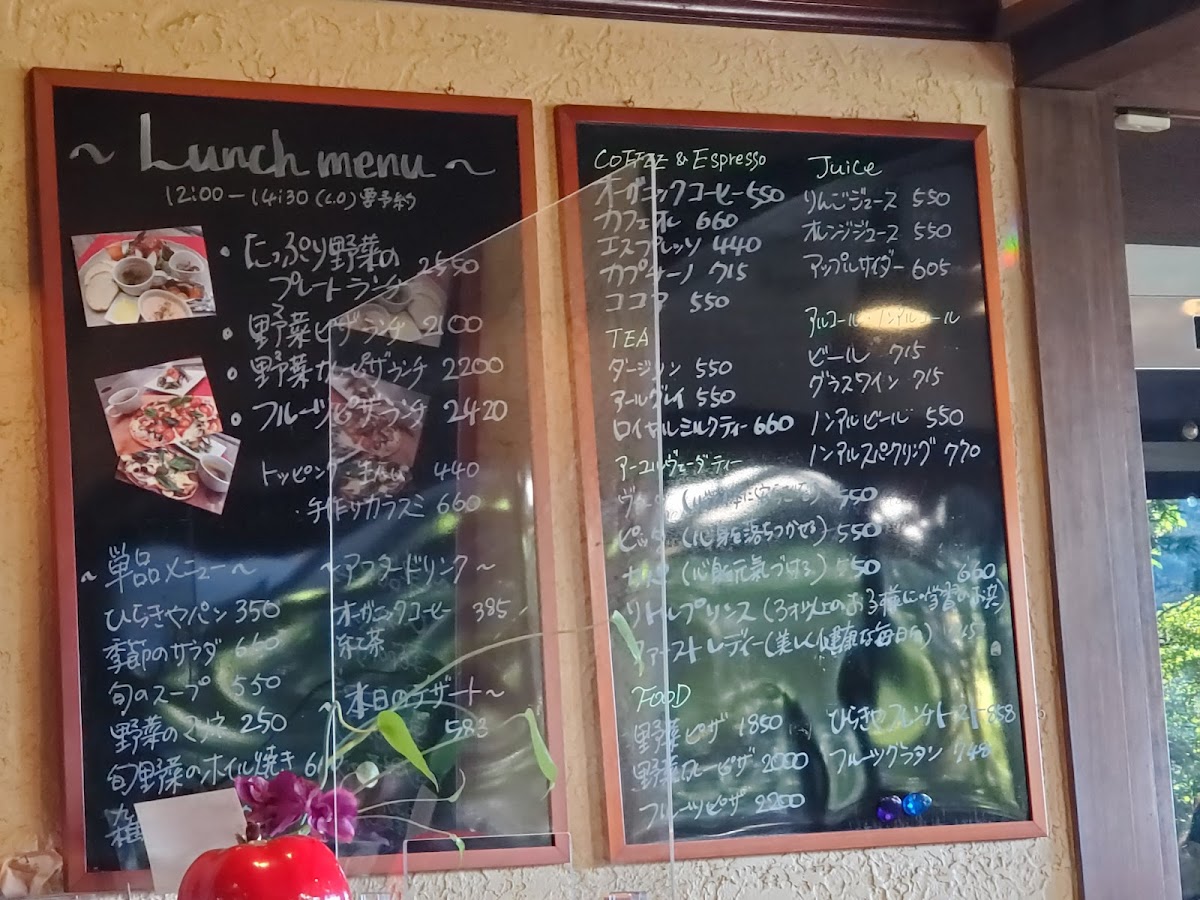 ~ Lunch menu ~
12:00-14:30 (L.O) 要予約
・たっぷり野菜の
プレートランチ 2550
・野菜ピザランチ 2100
・野菜カレーピザランチ 2200
・フルーツピザランチ 2420
トッピング 440
・手作りカラスミ 660
~ 単品メニュー ~
ひらきやパン 350
季節のサラダ 660
旬のスープ 550
野菜のマリネ 250
旬野菜のホイル焼き
雑
~アフタードリンク~
オーガニックコーヒー 385
茶
~本日のデザート~
583
COFFEE & Espresso
オーガニックコーヒー 550
カフェオレ 660
エスプレッソ 440
カプチーノ 715
ココア 550
TEA
ダージリン 550
アールグレイ 550
ロイヤルミルクティー 660
アーユルヴェーダティー
550
ピッタ (心身を落ちつかせる) 550
(心身元気づける) 550
660
リトルプリンス (3才以上のお子様に・学習のお共)
ファーストレディー (美しく健康な毎日を)
FOOD
野菜ピザ 1850
野菜カレーピザ 2000
フルーツピザ 2200
ひらきやフレンチトースト 858
フルーツグラタン 748
Juice
りんごジュース 550
オレンジジュース 550
アップルサイダー 605
アルコール・ノンアルコール
ビール 715
グラスワイン 715
ノンアルビール 550
ノンアルスパークリング 770